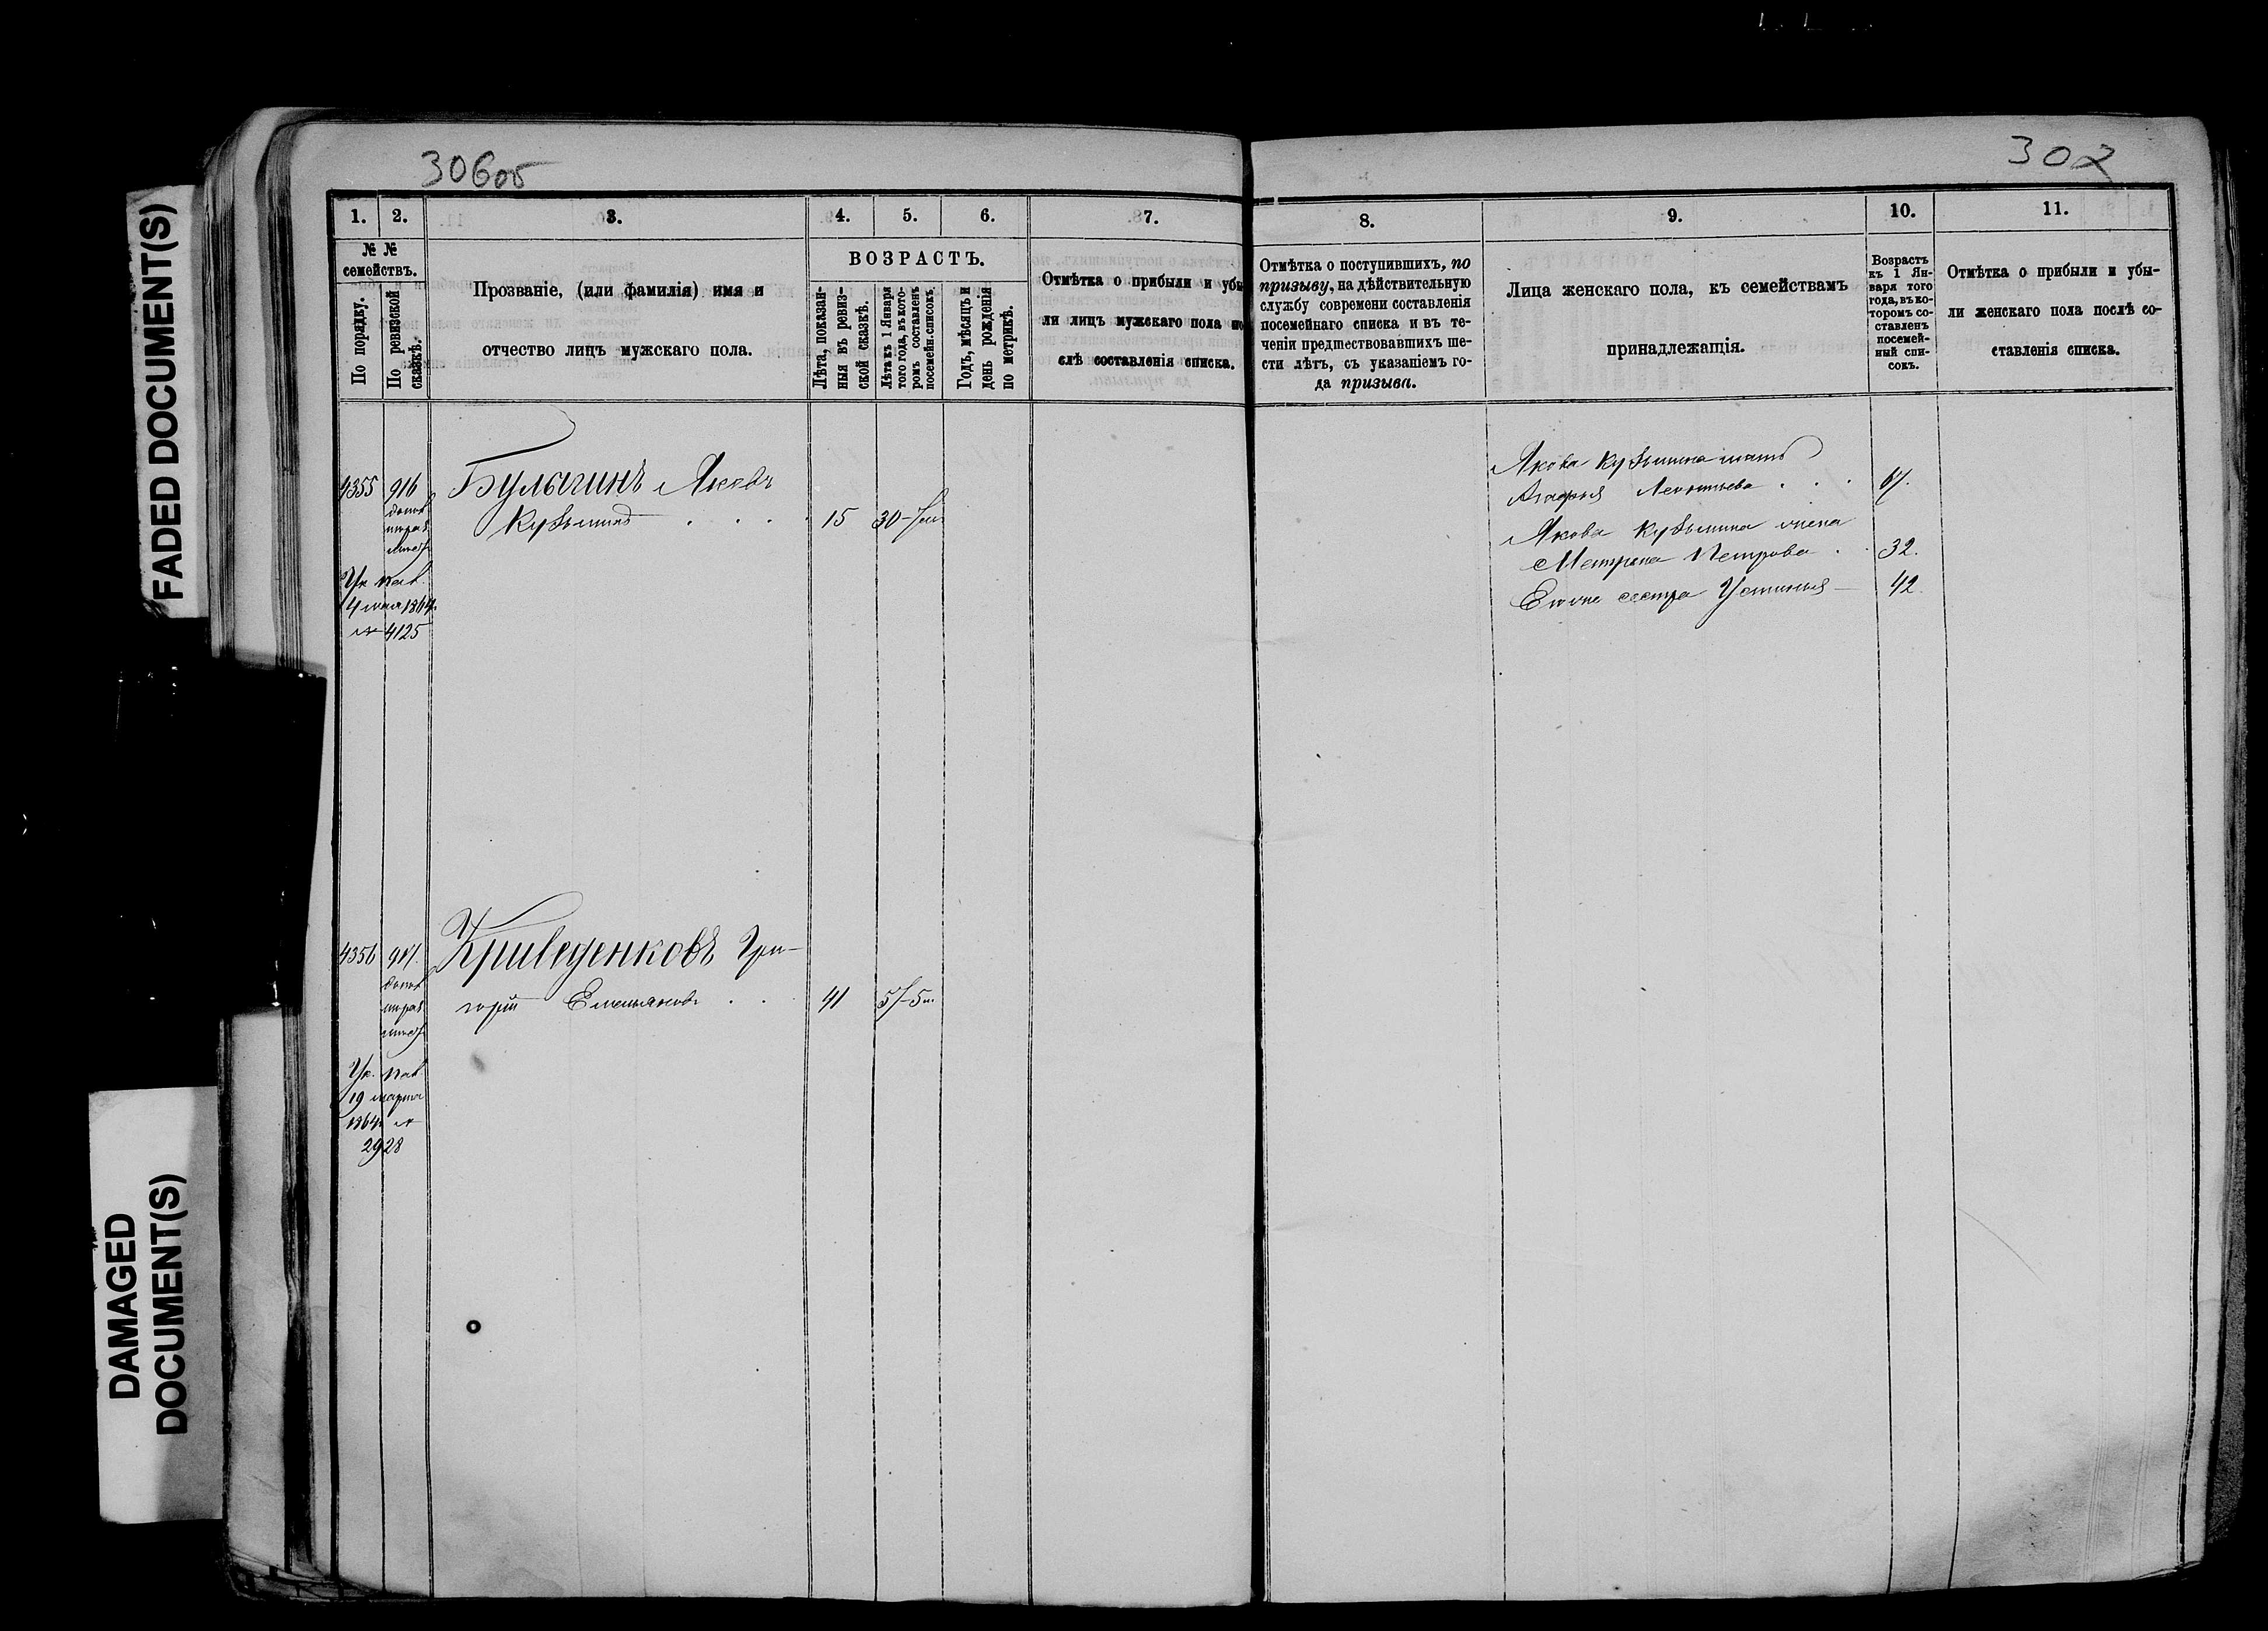 FADED DOCUMENT(S)
DAMAGED
DOCUMENT(S)
306об
1. 2. 3. 4. 5. 6. 7.
№ № семействъ.
По порядку.
По ревизской сказкѣ.
Прозваніе, (или фамилія) имя и
отчество лицъ мужскаго пола.
ВОЗРАСТЪ.
Лѣта, показан-
ныя въ ревиз-
ской сказкѣ.
Лѣта къ 1 Января
того года, въ кото-
ромъ составленъ
посемейн. списокъ.
Годъ, мѣсяцъ и
день рожденія
по метрикѣ.
Отмѣтка о прибыли и убы
ли лицъ мужскаго пола по
слѣ составленія списка.
4355 916 Булыгинъ Яковъ
Кузьминъ . . . . 15 30
Ук. пал.
4 мая 1864
№ 4125
4356 917. Криведенковъ Гри-
горій Емельяновъ . . 41
Ук. пал.
19 марта
1864 №
2928
302
8. 9. 10. 11.
Отмѣтка о поступившихъ, по
призыву, на дѣйствительную
службу современи составленія
посемейнаго списка и въ те-
ченіи предшествовавшихъ ше-
сти лѣтъ, съ указаніемъ го-
да призыва.
Лица женскаго пола, къ семействамъ
принадлежащія.
Возрастъ
къ 1 Ян-
варя того
года, въ ко-
торомъ со-
ставленъ
посемей-
ный спи-
сокъ.
Отмѣтка о прибыли и убы-
ли женскаго пола послѣ со-
ставленія списка.
Якова Кузьмина мать
Агафья Леонтьева . . .
Якова Кузьмина жена
Матрена Петрова . . 32.
Его же сестра Устинья — 42.